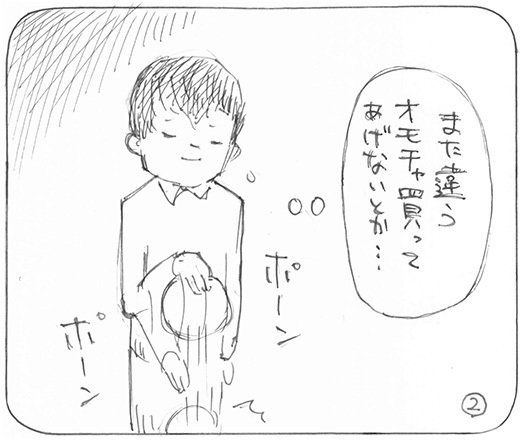 また違う
オモチャ買って
あげないとか…
ポーン
ポーン
②